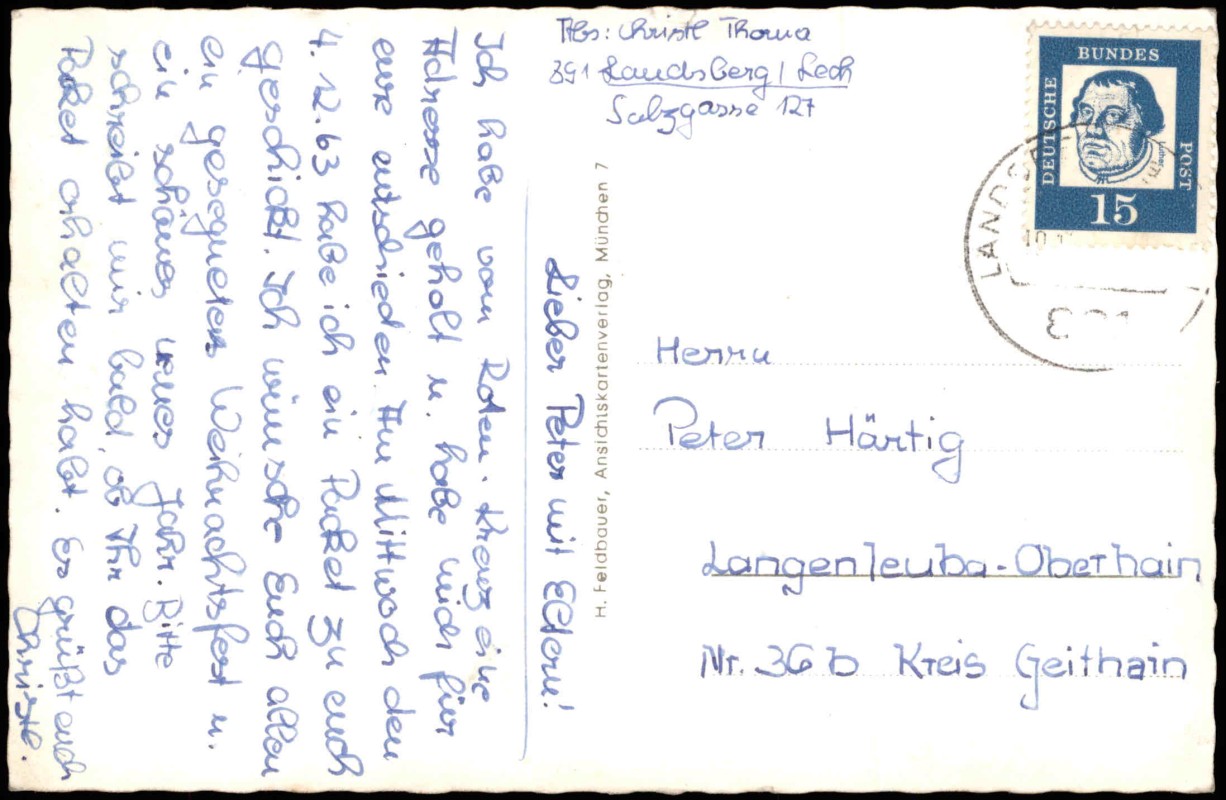 Abs: Christl Thoma
891 Landsberg / Lech
Salzgasse 127
DEUTSCHE
BUNDES
POST
15
LANDS
Lieber Peter mit Eltern!
Ich habe vom Roten-Kreuz eine
Adresse geholt u. habe mich für
eure entschieden. Am Mittwoch den
4. 12. 63 habe ich ein Paket zu euch
geschickt. Ich wünsche Euch allen
ein gesegnetes Weihnachtsfest u.
ein schönes neues Jahr. Bitte
schreibt mir bald, ob Ihr das
Paket erhalten habt. Es grüßt euch
Christl.
H. Feldbauer, Ansichtskartenverlag, München 7
Herrn
Peter Härtig
Langenleuba-Oberhain
Nr. 36 b Kreis Geithain